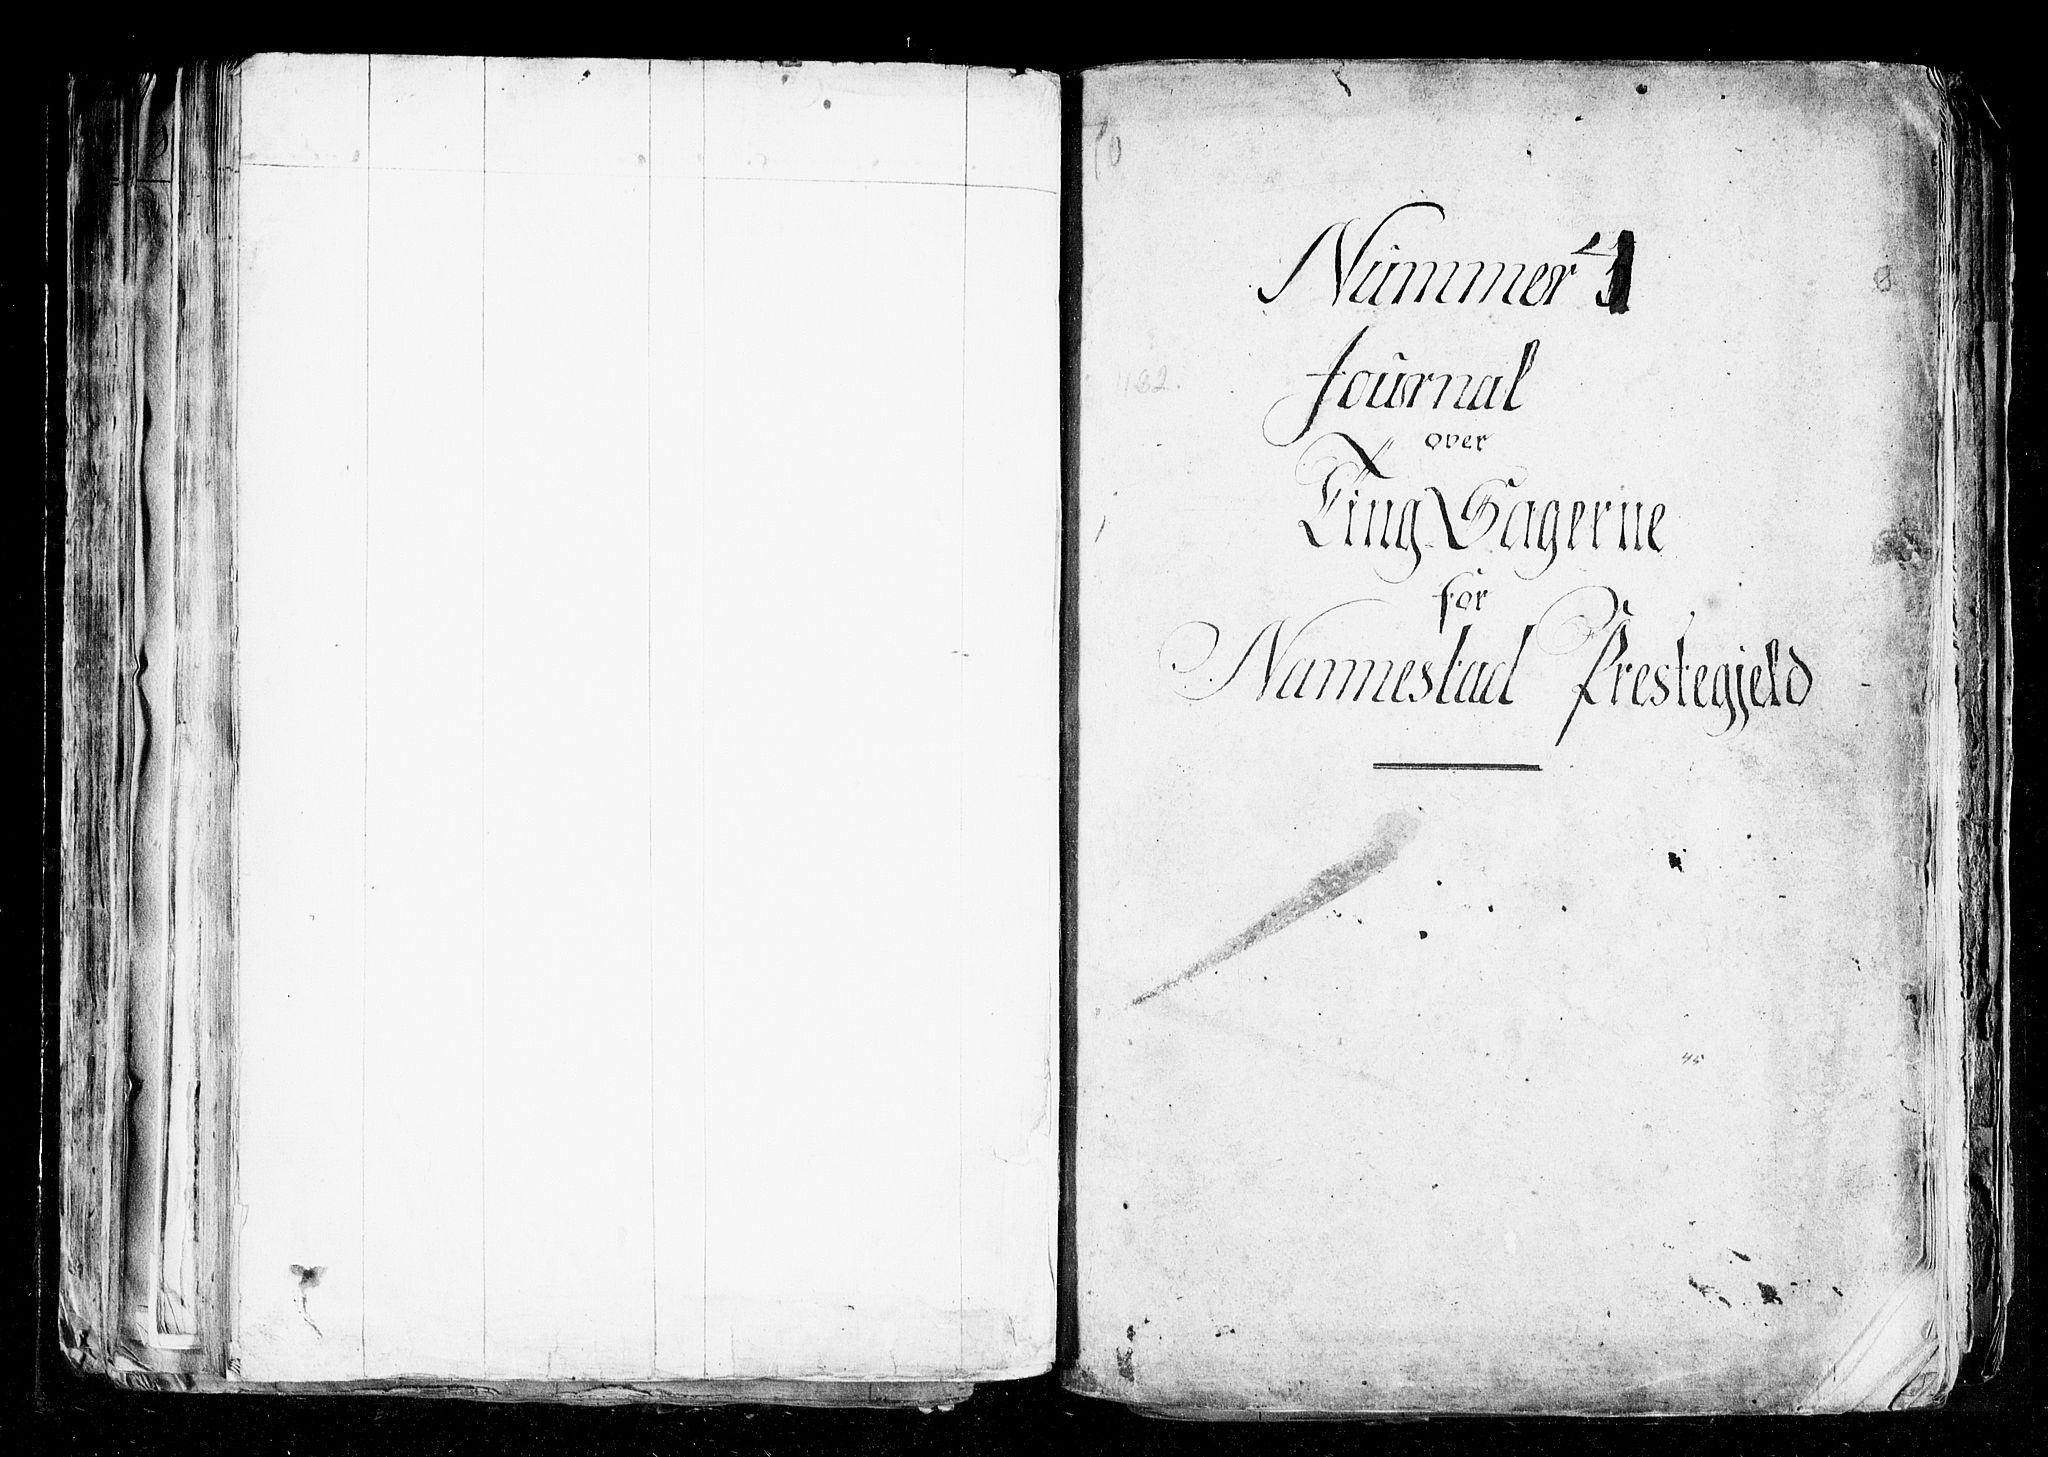 Nummer 4
Journal
over
Ting Sagerne
for
Nannestad Prestegjeld
45